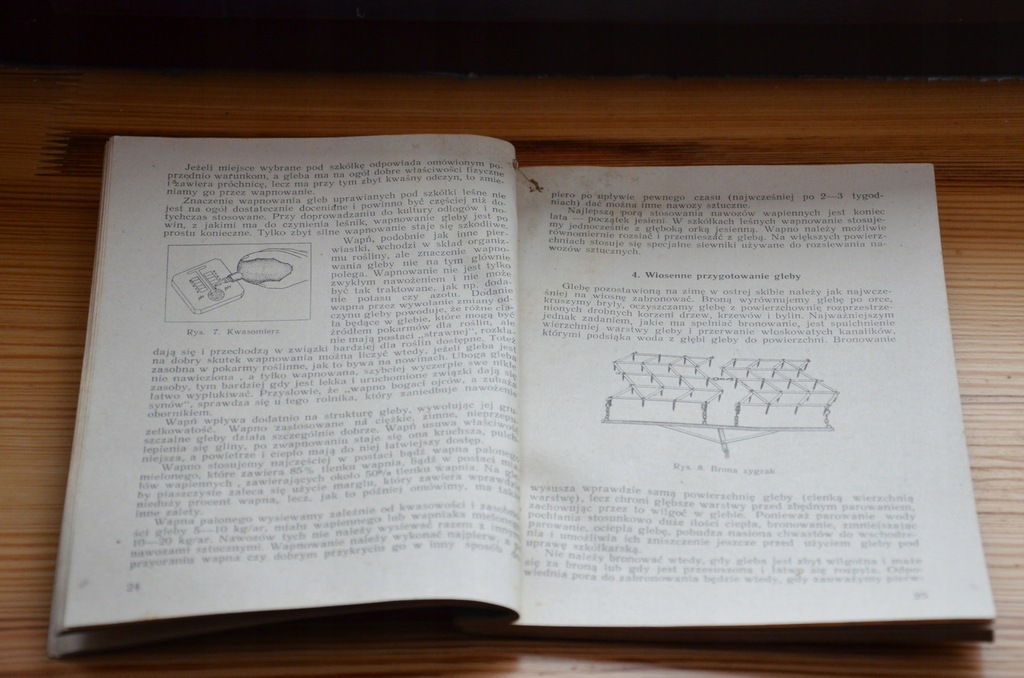 Jeżeli miejsce wybrane pod szkółkę odpowiada omówionym po-
przednio warunkom, a gleba ma na ogół dobre właściwości fizyczne
i zawiera próchnicę, lecz ma przy tym zbyt kwaśny odczyn, to zmie-
niamy go przez wapnowanie.
Znaczenie wapnowania gleb uprawianych pod szkółki leśne nie
jest na ogół dostatecznie doceniane i powinno być częściej niż do-
tychczas stosowane. Przy doprowadzaniu do kultury odłogów i no-
win, z jakimi ma do czynienia leśnik, wapnowanie gleby jest po
prostu konieczne. Tylko zbyt silne wapnowanie staje się szkodliwe.
Wapń, podobnie jak inne pier-
wiastki, wchodzi w skład organiz-
mu rośliny, ale znaczenie wapno-
wania gleby nie na tym głównie
polega. Wapnowanie nie jest tylko
zwykłym nawożeniem i nie może
być tak traktowane, jak np. doda-
nie potasu czy azotu. Dodanie
wapna przez wywołanie zmiany od-
czynu gleby powoduje, że różne cia-
ła będące w glebie, które mogą być
źródłem pokarmów dla roślin, ale
nie mają postaci „strawnej", rozkła-
Rys. 7. Kwasomierz
dają się i przechodzą w związki bardziej dla roślin dostępne. Toteż
na dobry skutek wapnowania można liczyć wtedy, jeżeli gleba jest
zasobna w pokarmy roślinne, jak to bywa na nowinach. Uboga gleba
nie nawieziona, a tylko wapnowana, szybciej wyczerpie swe nikłe
zasoby, tym bardziej gdy jest lekka i uruchomione związki dają się
łatwo wypłukiwać. Przysłowie, że „wapno bogaci ojców, a zubaża
synów", sprawdza się u tego rolnika, który zaniedbuje nawożenie
obornikiem.
Wapń wpływa dodatnio na strukturę gleby, wywołując jej gru-
zełkowatość. Wapno zastosowane na ciężkie, zimne, nieprzepu-
szczalne gleby działa szczególnie dobrze. Wapń usuwa właściwość
lepienia się gliny, po zwapnowaniu staje się ona kruchsza, pulch-
niejsza, a powietrze i ciepło mają do niej łatwiejszy dostęp.
Wapno stosujemy najczęściej w postaci bądź wapna palonego
mielonego, które zawiera 85% tlenku wapnia, bądź w postaci mia-
łów wapiennych, zawierających około 50% tlenku wapnia. Na gle-
by piaszczyste zaleca się użycie marglu, który zawiera wprawdzie
nieduży procent wapna, lecz, jak to później omówimy, ma także
inne zalety.
Wapna palonego wysiewamy zależnie od kwasowości i zasobno-
ści gleby 5—10 kg/ar, miału wapiennego lub wapniaka mielonego
10—20 kg/ar. Nawozów tych nie należy wysiewać razem z innymi
nawozami sztucznymi. Wapnowanie należy wykonać najpierw, a po
przyoraniu wapna czy dobrym przykryciu go w inny sposób
24
piero po upływie pewnego czasu (najwcześniej po 2—3 tygod-
niach) dać można inne nawozy sztuczne.
Najlepszą porą stosowania nawozów wapiennych jest koniec
lata — początek jesieni. W szkółkach leśnych wapnowanie stosuje-
my jednocześnie z głęboką orką jesienną. Wapno należy możliwie
równomiernie rozsiać i przemieszać z glebą. Na większych powierz-
chniach stosuje się specjalne siewniki używane do rozsiewania na-
wozów sztucznych.
4. Wiosenne przygotowanie gleby
Glebę pozostawioną na zimę w ostrej skibie należy jak najwcze-
śniej na wiosnę zabronować. Broną wyrównujemy glebę po orce,
kruszymy bryły, oczyszczamy glebę z powierzchownie rozprzestrze-
nionych drobnych korzeni drzew, krzewów i bylin. Najważniejszym
jednak zadaniem, jakie ma spełniać bronowanie, jest spulchnienie
wierzchniej warstwy gleby i przerwanie włoskowatych kanalików,
którymi podsiąka woda z głębi gleby do powierzchni. Bronowanie
Rys. 8. Brona zygzak
wysusza wprawdzie samą powierzchnię gleby (cienką wierzchnią
warstwę), lecz chroni głębsze warstwy przed zbędnym parowaniem,
zachowując przez to wilgoć w glebie. Ponieważ parowanie wody
pochłania stosunkowo duże ilości ciepła, bronowanie, zmniejszając
parowanie, ociepla glebę, pobudza nasiona chwastów do wschodze-
nia i umożliwia ich zniszczenie jeszcze przed użyciem gleby pod
uprawę szkółkarską.
Nie należy bronować wtedy, gdy gleba jest zbyt wilgotna i maże
się za broną lub gdy jest przesuszona i łatwo się rozpyla. Odpo-
wiednia pora do zabronowania będzie wtedy, gdy zauważymy pierw-
25